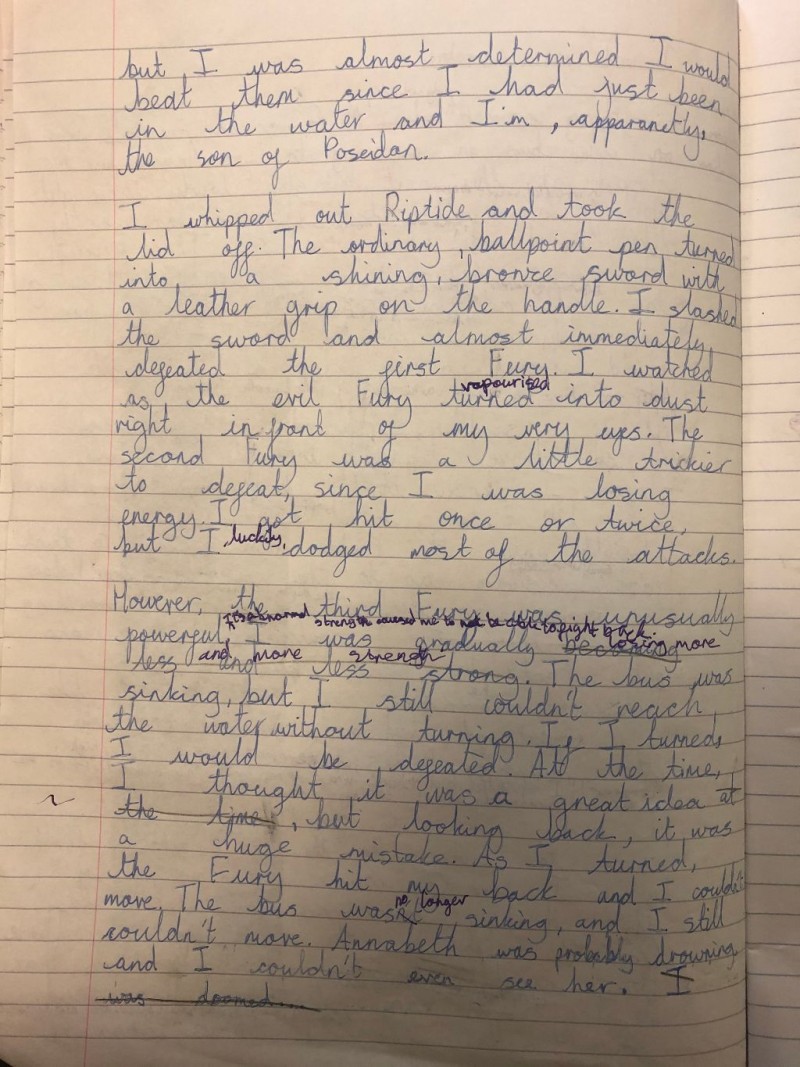 but I was almost determined I would
beat them since I had just been
in the water and I'm, apparanctly,
the son of Poseidan.
I whipped out Riptide and took the
lid off. The ordinary, ballpoint pen turned
into a shining, bronze sword with
a leather grip on the handle. I slashed
the sword and almost immediately
defeated the first Fury. I watched
vapourised
as the evil Fury turned into dust
right in front of my very eyes. The
second Fury was a little trickier
to defeat, since I was losing
energy. I got hit once or twice,
but I luckily dodged most of the attacks.
However, the third Fury was unusually
strength caused me to not be able to fight back.
powerful, I was gradually becoming losing more
and more strength
less and less strong. The bus was
sinking, but I still couldn't reach
the water without turning. If I turned,
I would be defeated. At the time,
I thought it was a great idea at
the time, but looking back, it was
a huge mistake. As I turned,
the Fury hit my back and I couldn't
move. The bus was no longer sinking, and I still
couldn't move. Annabeth was probably drowning
and I couldn't even see her. I
was doomed....